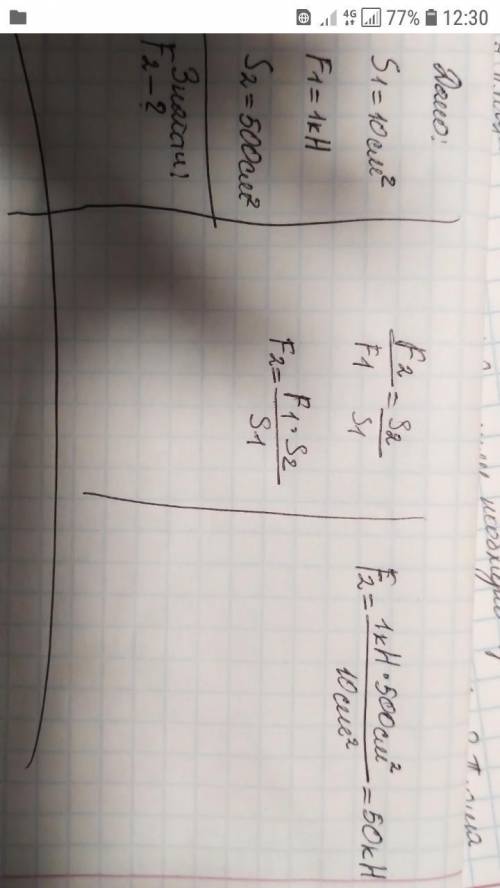 4G 77% 12:30
Дано:
S1 = 10см²
F1 = 1кН
S2 = 500см²
F2 - ?
F2/F1 = S2/S1
F2 = F1·S2/S1
F2 = 1кН·500см²/10см² = 50кН